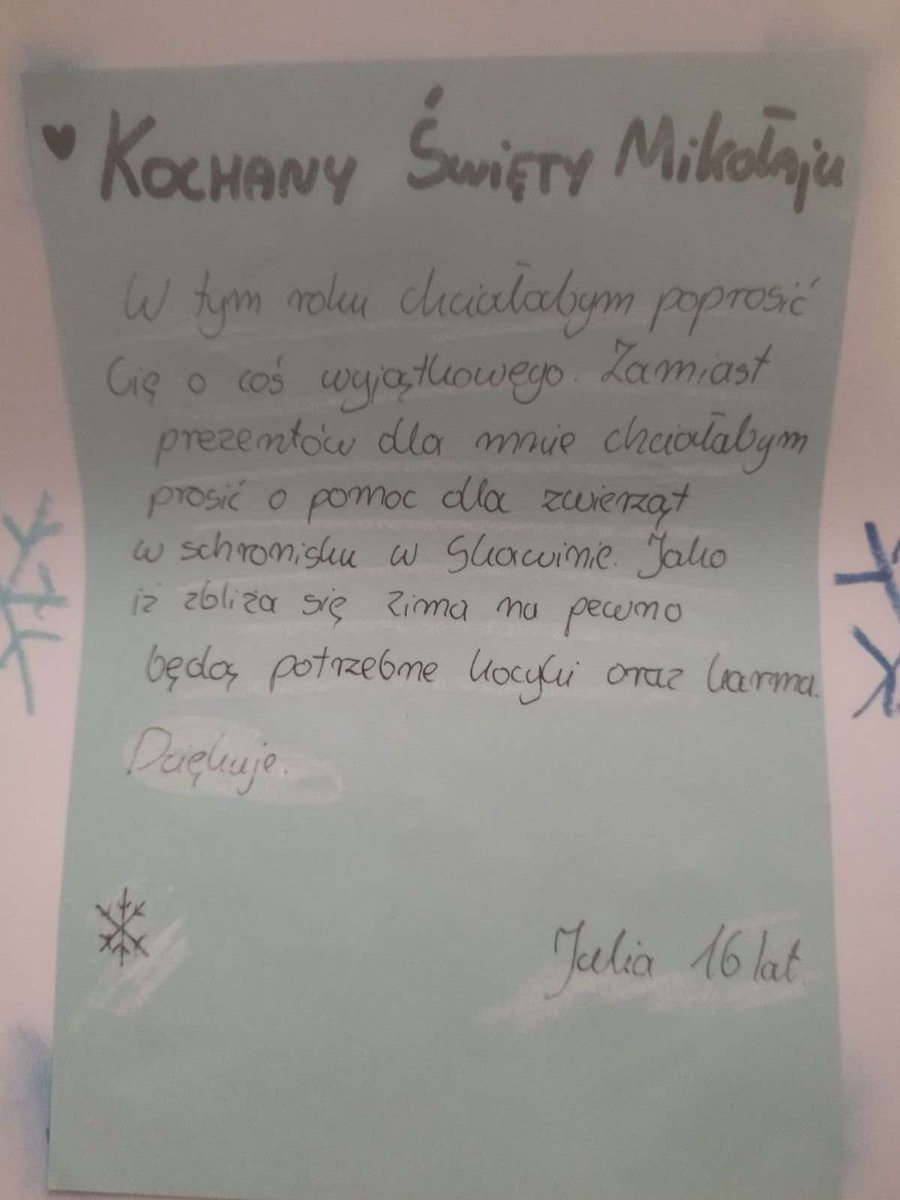 ♥ KOCHANY ŚWIĘTY MIKOŁAJU
W tym roku chciałabym poprosić
Cię o coś wyjątkowego. Zamiast
prezentów dla mnie chciałabym
prosić o pomoc dla zwierząt
w schronisku w Skawinie. Jako
iż zbliża się zima na pewno
będą potrzebne kocyki oraz karma.
Dziękuje.
Julia 16 lat